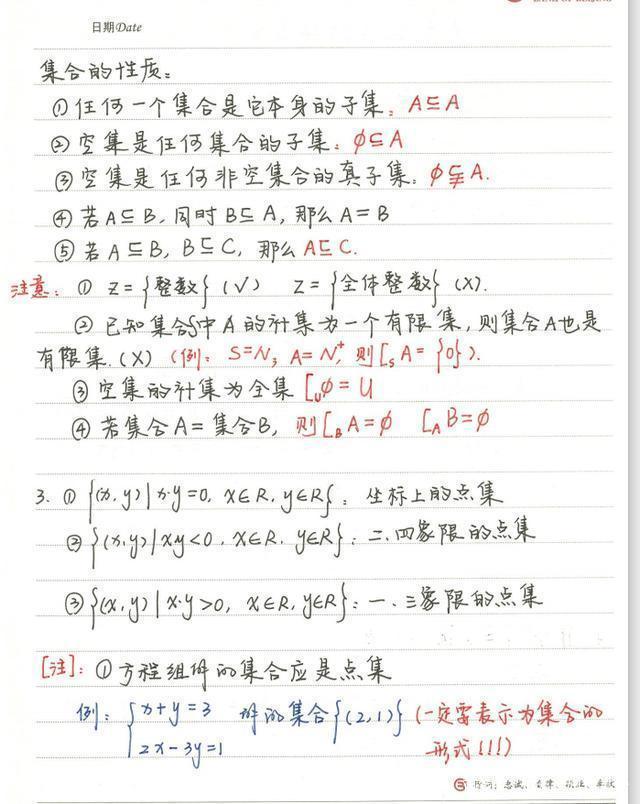 日期Date
集合的性质:
①任何一个集合是它本身的子集. A⊆A
②空集是任何集合的子集. ϕ⊆A
③空集是任何非空集合的真子集. ϕ⫋A.
④若A⊆B,同时B⊆A,那么A=B
⑤若A⊆B, B⊆C, 那么A⊆C.
注意: ① Z={整数} (√) Z={全体整数} (X).
②已知集合S中A的补集为一个有限集,则集合A也是
有限集.(X) (例: S=N, A=N⁺, 则∁ₛA={0}).
③空集的补集为全集 ∁ᵤϕ=U
④若集合A=集合B, 则∁_B A=ϕ ∁_A B=ϕ
3. ①{(x,y)|x·y=0, x∈R, y∈R}: 坐标上的点集
②{(x,y)|xy<0, x∈R, y∈R}: 二.四象限的点集
③{(x,y)|x·y>0, x∈R, y∈R}: 一.三象限的点集
[注]: ①方程组解的集合应是点集
例: {x+y=3 解的集合{(2,1)} (一定要表示为集合的
2x-3y=1 形式!!!)